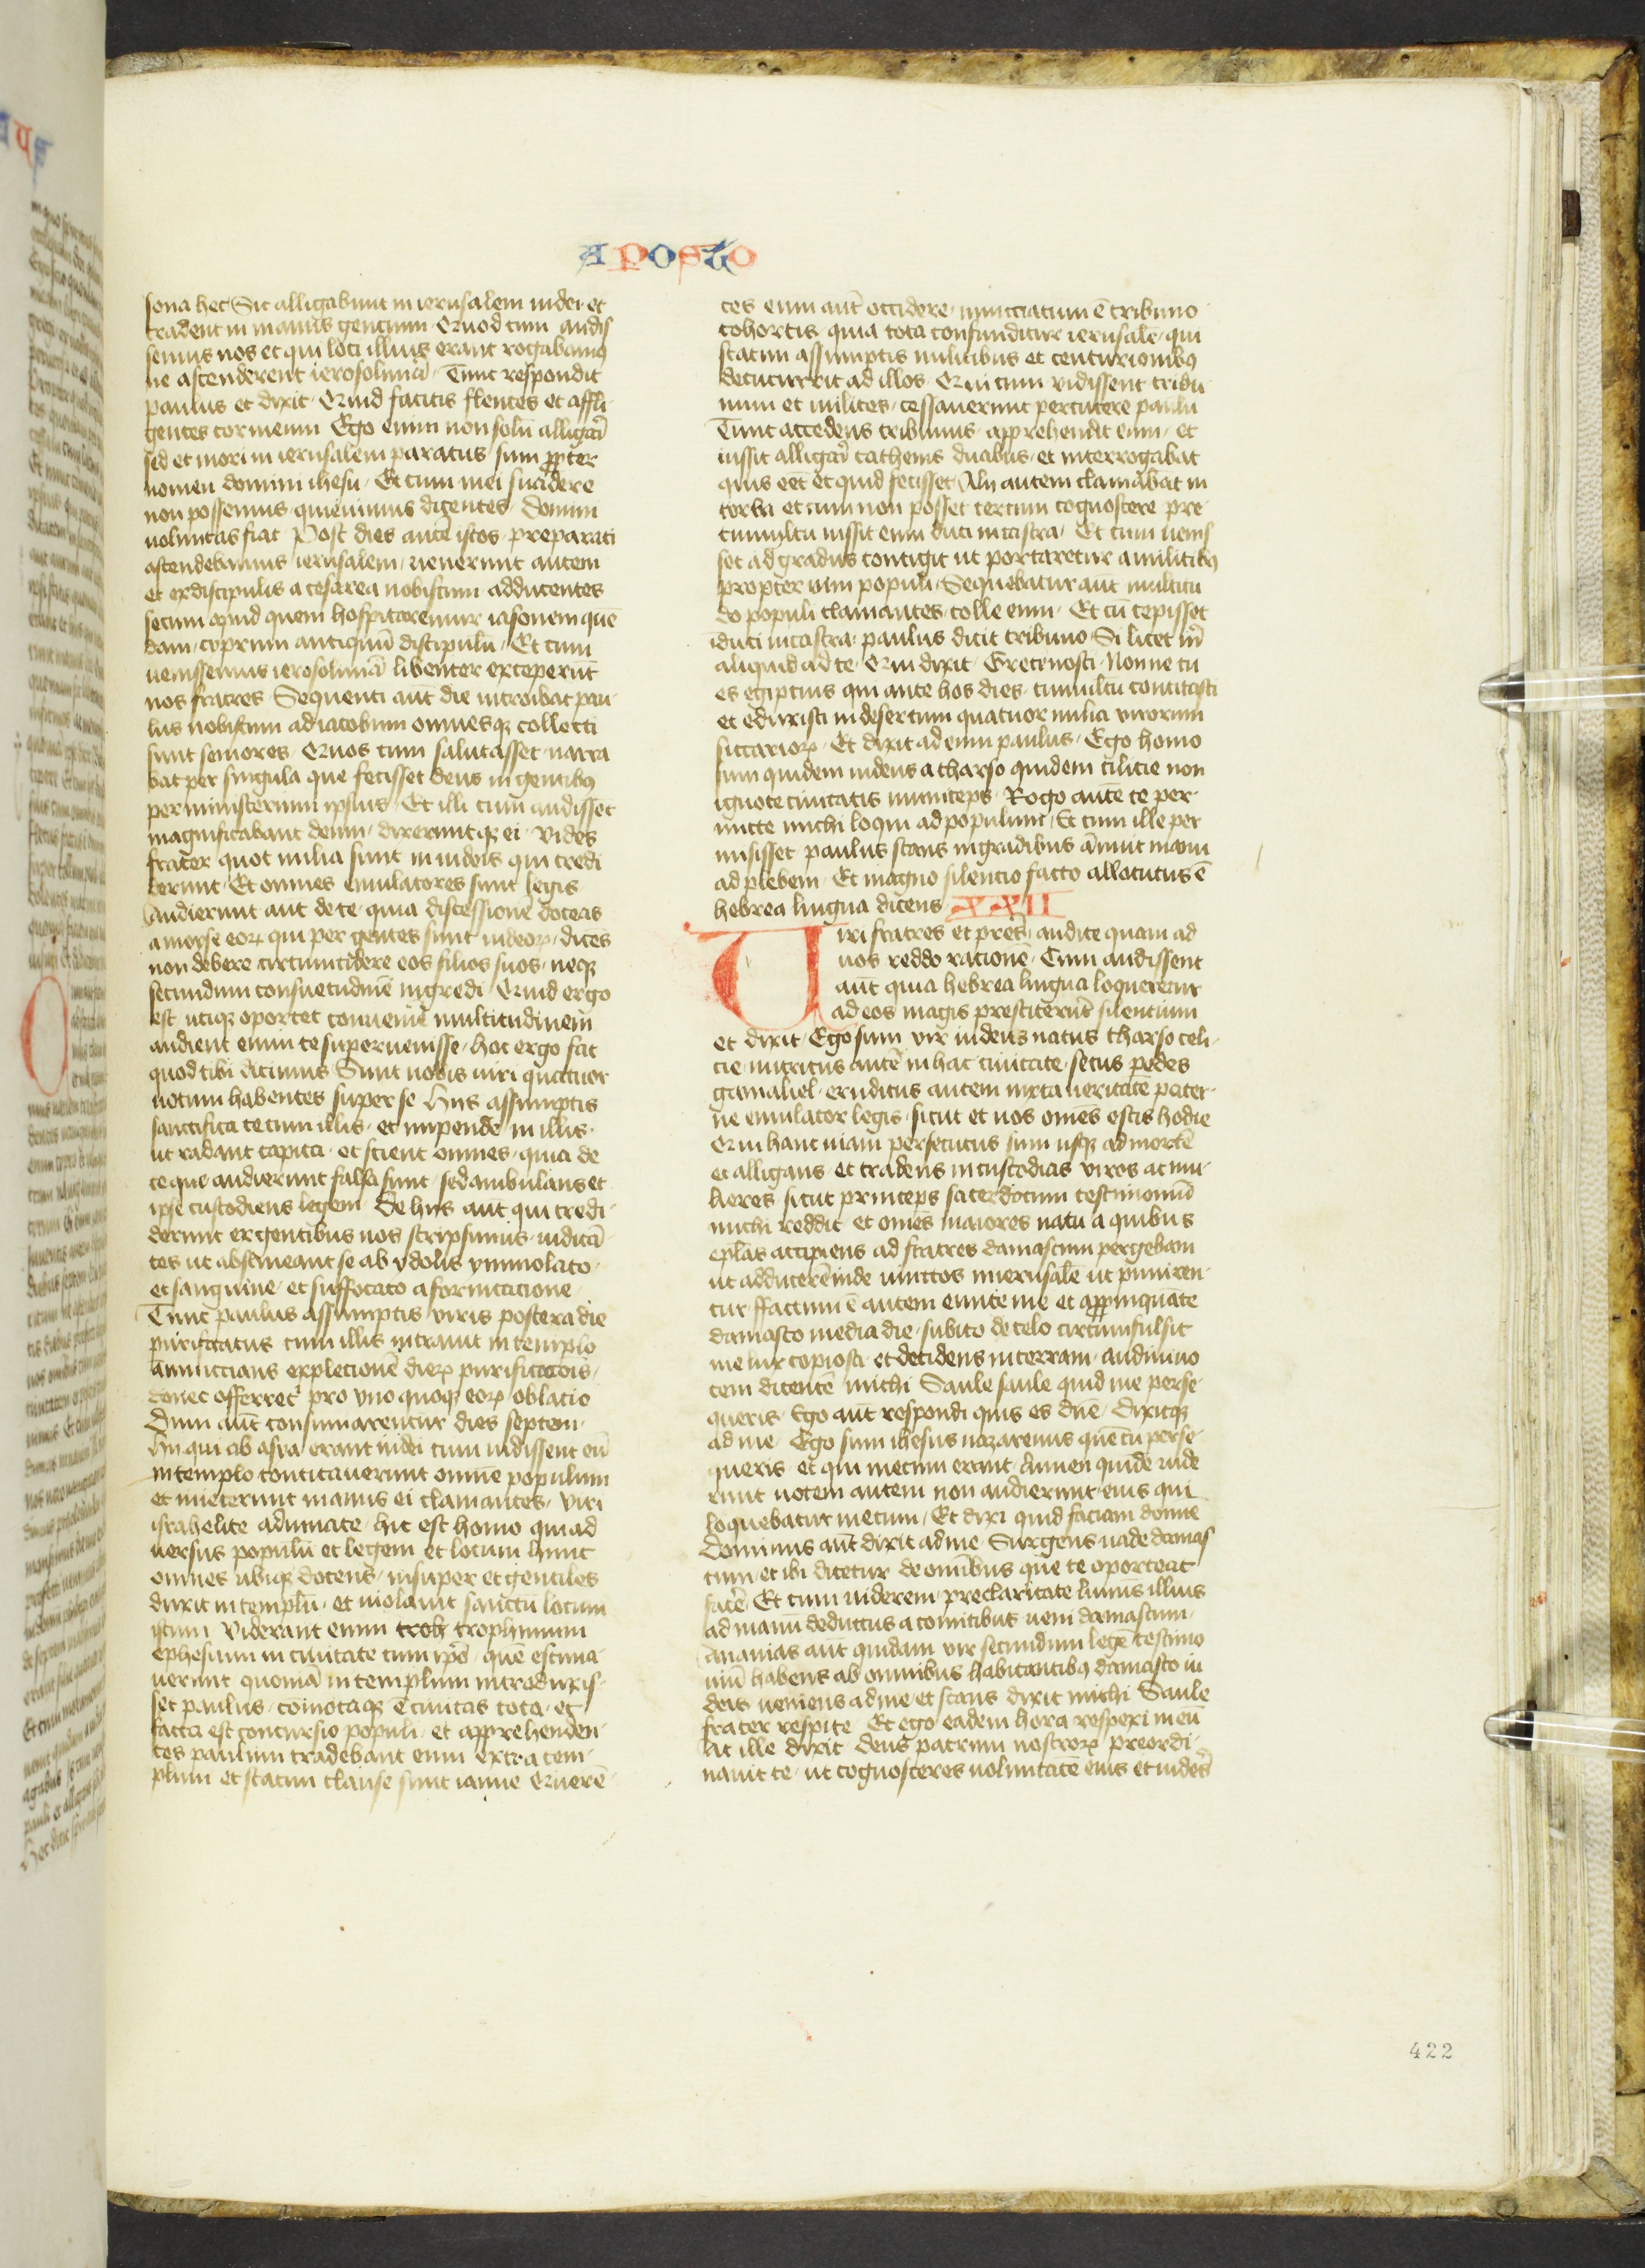 APOSTO
sona hec Sic alligabunt in ierusalem iudei et
tradent in manus gencium Quod cum audis
semus nos et qui loci illius erant rogabamꝰ
ne ascenderent ierosolimā Tunc respondit
paulus et dixit Quid facitis flentes et affli
gentes cor meum Ego enim non solū alligari
sed et mori in ierusalem paratus sum ꝓpter
nomen domini ihesu Et cum mei suadere
non possemus quieuimus dicentes domini
uoluntas fiat Post dies autē istos preparati
ascendebamus ierusalem uenerunt autem
et ex discipulis a cesarea nobiscum adducentes
secum apud quem hospitaremur iasonem quē
dam cyprium antiquū discipulū Et cum
uenissemus ierosolimā libenter exceperūt
nos fratres Sequenti aut die introibat pau
lus nobiscum ad iacobum omnesqꝫ collecti
sunt seniores Quos cum salutasset narra
bat per singula que fecisset deus in gentibꝰ
per ministerium ipsius Et illi cum audisset
magnificabant deum dixeruntqꝫ ei Vides
frater quot milia sunt in iudeis qui credi
derunt Et omnes emulatores sunt legis
Audierunt aut de te quia discessionē doceas
a moyse eoꝝ qui per gentes sunt iudeoꝝ dices
non debere circumcidere eos filios suos neqꝫ
secundum consuetudinē ingredi Quid ergo
est utiqꝫ oportet conuenire multitudinem
audient enim te superuenisse hoc ergo fac
quod tibi dicimus Sunt nobis uiri quatuor
uotum habentes super se Hiis assumptis
sanctifica te cum illis et inpende in illis
ut radant capita et scient omnes quia de
te que audierunt falsa sunt sed ambulans et
ipse custodiens legem De hiis aut qui credi
derunt ex gentibus nos scripsimus iudicā
tes ut abstineant se ab ydolis ymmolato
et sanguine et suffocato a fornicacione
Tunc paulus assumptis viris postera die
purificatus cum illis intrauit in templo
annuccians expletionē dieꝝ purificacōis
donec offerret' pro vno quoqꝫ eoꝝ oblacio
Dum aut consumarentur dies septem
Hii qui ab asia erant iudei cum uidissent eū
in templo concitauerunt omnē populum
et iniecerunt manus ei clamantes Viri
israhelite adiuuate hic est homo qui ad
uersus populū et legem et locum hunc
omnes ubiqꝫ docens insuper et gentiles
duxit in templū et uiolauit sanctū locum
istum Viderant enim trofi trophimum
ephesium in ciuitate cum ipō quē estima
uerunt quoniā in templum introduxis
set paulus comotaqꝫ ē ciuitas tota et
facta est concursio populi et apprehenden
tes paulum trahebant eum extra tem
plum et statim clause sunt ianue Querē
tes eum aut occidere nuncciatum ē tribuno
cohortis quia tota confunditur ierusalē qui
statim assumptis militibus et centurionibꝰ
decucurrit ad illos Qui cum vidissent tribu
num et milites cessauerunt percutere paulū
Tunc accedens tribunus apprehendit eum et
iussit alligari cathenis duabus et interrogabat
quis eēt et quid fecisset Alij autem clamabāt in
torba et cum non posset certum cognoscere pre
tumultu iussit eum duci in castra Et cum uenis
set ad gradus contigit ut portaretur a militibꝰ
propter uim populi Sequebatur aut multitu
do populi clamantes tolle eum Et cū cepisset
iduci in castra paulus dicit tribuno Si licet m̄
aliquid ad te Qui dixit Grece nosti Nonne tu
es egiptius qui ante hos dies tumultū concitasti
et eduxisti in desertum quatuor milia virorum
siccarioꝝ Et dixit ad eum paulus Ego homo
sum quidem iudeus a tharso quidem cilicie non
ignote ciuitatis municeps Rogo autē te per
mitte michi loqui ad populum Et cum ille per
misisset paulus stans in gradibus ānuit manu
ad plebem Et magno silencio facto allocutus ē
hebrea lingua dicens XXII
Viri fratres et pr̄es audite quam ad
uos reddo racionē Cum audissent
aūt quia hebrea lingua loqueretur
ad eos magis prestiterūt silentium
et dixit Ego sum vir iudeus natus tharso celi
cie nutritus autē in hac ciuitate secus pedes
gamaliel eruditus autem iuxta ueritate pater
ne emulator legis sicut et uos omēs estis hodie
Qui hanc uiam persecutus sum usqꝫ ad mortē
et alligans et tradens in custodias viros ac mu
lieres sicut princeps sacerdocum testimoniū
michi reddit et omēs maiores natu a quibus
eplās accipiens ad fratres damascum pergebam
ut adducerē inde uinctos in ierusalē ut puniren
tur ffactum ē autem eunte me et apꝓpinquāte
damasco media die subito de celo circumfulsit
me lux copiosa et decidens in terram audiui uo
cem dicentē michi Saule saule quid me perse
queris Ego aūt respondi quis es dn̄e Dixitqꝫ
ad me Ego sum ihesus nazarenus que tu perse
queris et qui mecum erant lumen quidē uide
runt uocem autem non audierunt eius qui
loquebatur mecum Et dixi quid faciam domine
Dominus aūt dixit ad me Surgens uade damas
cum et ibi dicetur de omibus que te oporteat
facē Et cum uiderem preclaritate luminis illius
ad manū deductus a comitibus ueni damascum
Ananias aut quidam vir secundum legē testimo
niū habens ab omnibus habitantibꝰ damasco iu
deis ueniens ad me et stans dixit michi Saule
frater respice Et ego eadem hora respexi in eū
At ille dixit deus patrum nostroꝝ preordi
nauit te ut cognosceres uoluntatē eius et uides
422